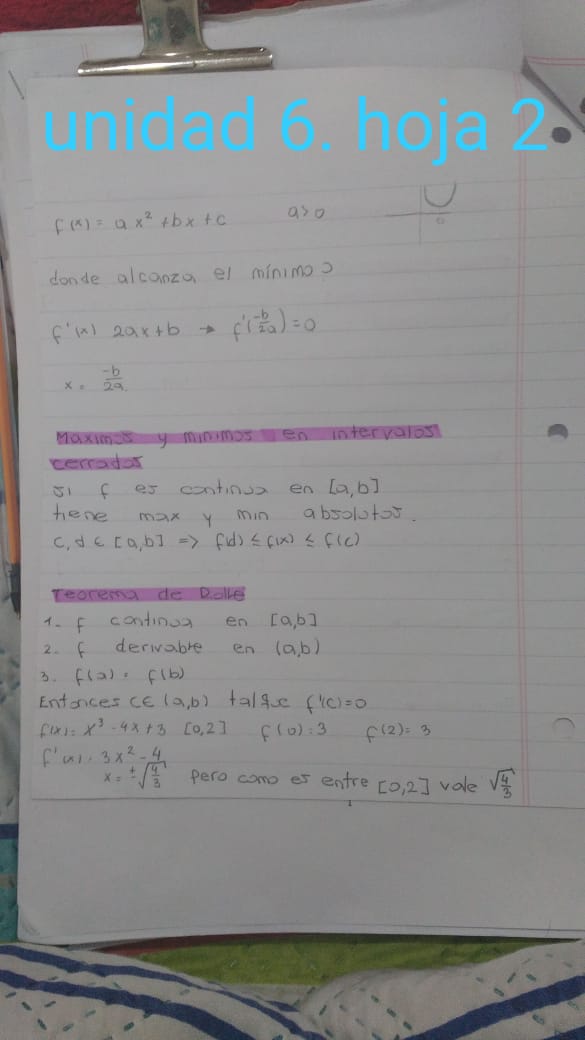 unidad 6. hoja 2.
f(x) = ax² + bx + c a>0
0
donde alcanza el mínimo?
f'(x) 2ax+b → f'(-b/2a) = 0
x = -b/2a
Maximos y minimos en intervalos
cerrados
si f es continua en [a,b]
tiene max y min absolutos.
c, d ∈ [a,b] => f(d) ≤ f(x) ≤ f(c)
Teorema de Rolle
1- f continua en [a,b]
2. f derivable en (a,b)
3. f(a) = f(b)
Entonces c∈ (a,b) tal que f'(c)=0
f(x) = x³ -4x+3 [0,2] f(0)=3 f(2)=3
f'(x) = 3x² -4
x = ±√4/3 pero como es entre [0,2] vale √4/3